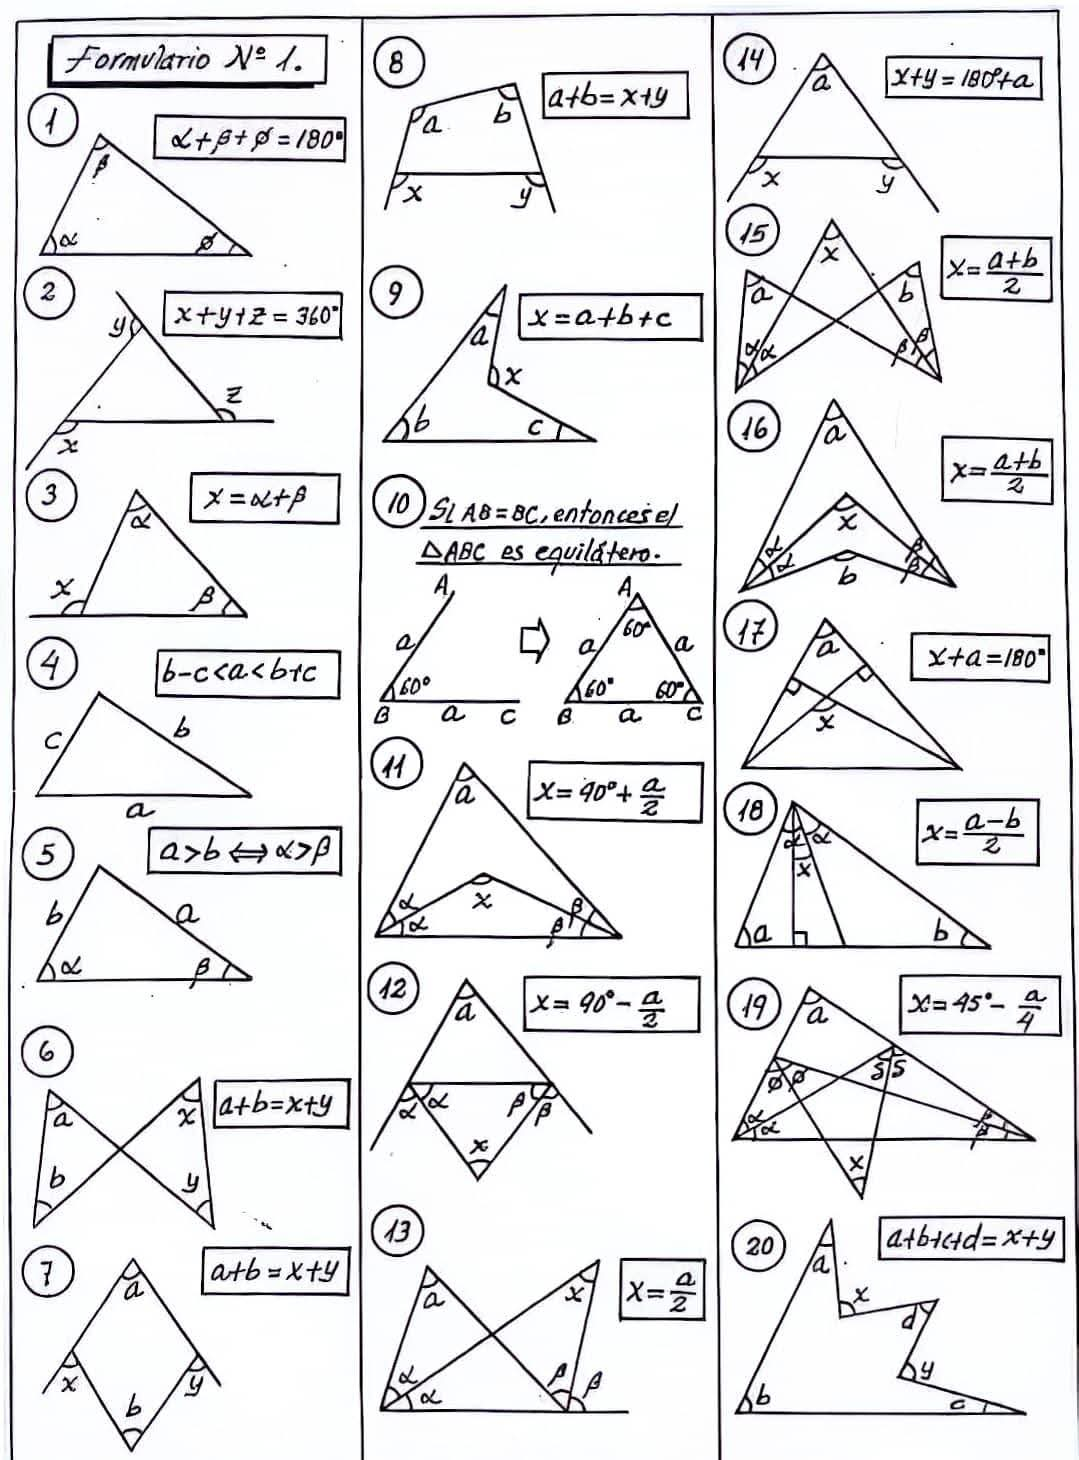 Formulario Nº 1.
1
α+β+ø=180°
β
α
ø
2
x+y+z=360°
y
z
x
3
x=α+β
α
x
β
4
b-c<a<b+c
c
b
a
5
a>b⇔α>β
b
a
α
β
6
a+b=x+y
a
x
b
y
7
a+b=x+y
a
x
y
b
8
a+b=x+y
a
b
x
y
9
x=a+b+c
a
x
b
c
10
Si AB=BC, entonces el
△ABC es equilátero.
A
a
60°
B
a
C
A
60°
a
a
60°
60°
B
a
C
11
x=90°+a/2
a
x
α
α
β
β
12
x=90°-a/2
a
α
α
β
β
x
13
x=a/2
a
x
α
α
β
β
14
x+y=180°+a
a
x
y
15
x=(a+b)/2
x
a
b
α
α
β
β
16
x=(a+b)/2
a
x
α
α
β
β
b
17
x+a=180°
a
x
18
x=(a-b)/2
α
α
x
a
b
19
x=45°-a/4
a
ø
ø
s
s
α
α
β
β
x
20
a+b+c+d=x+y
a
x
d
y
b
c